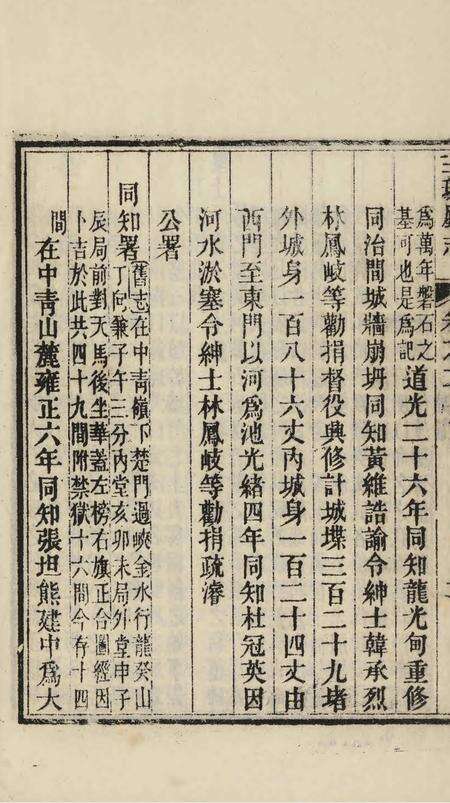 爲萬年磐石之
基可也是爲記
道光二十六年同知龍光甸重修
同治間城牆崩坍同知黃維誥諭令紳士韓承烈
林鳳岐等勸捐督役興修計城堞三百二十九堵
外城身一百八十六丈內城身一百二十四丈由
西門至東門以河爲池光緒四年同知杜冠英因
河水淤塞令紳士林鳳岐等勸捐疏濬
公署
同知署
舊志在中靑嶺下楚門過峽金水行龍癸山
丁向兼子午三分內堂亥卯未局外堂申子
辰局前對天馬後坐華蓋左榜右旗正合圖經因
卜吉於此共四十九間附禁獄十六間今存十四
間
在中靑山麓雍正六年同知張坦熊建中爲大